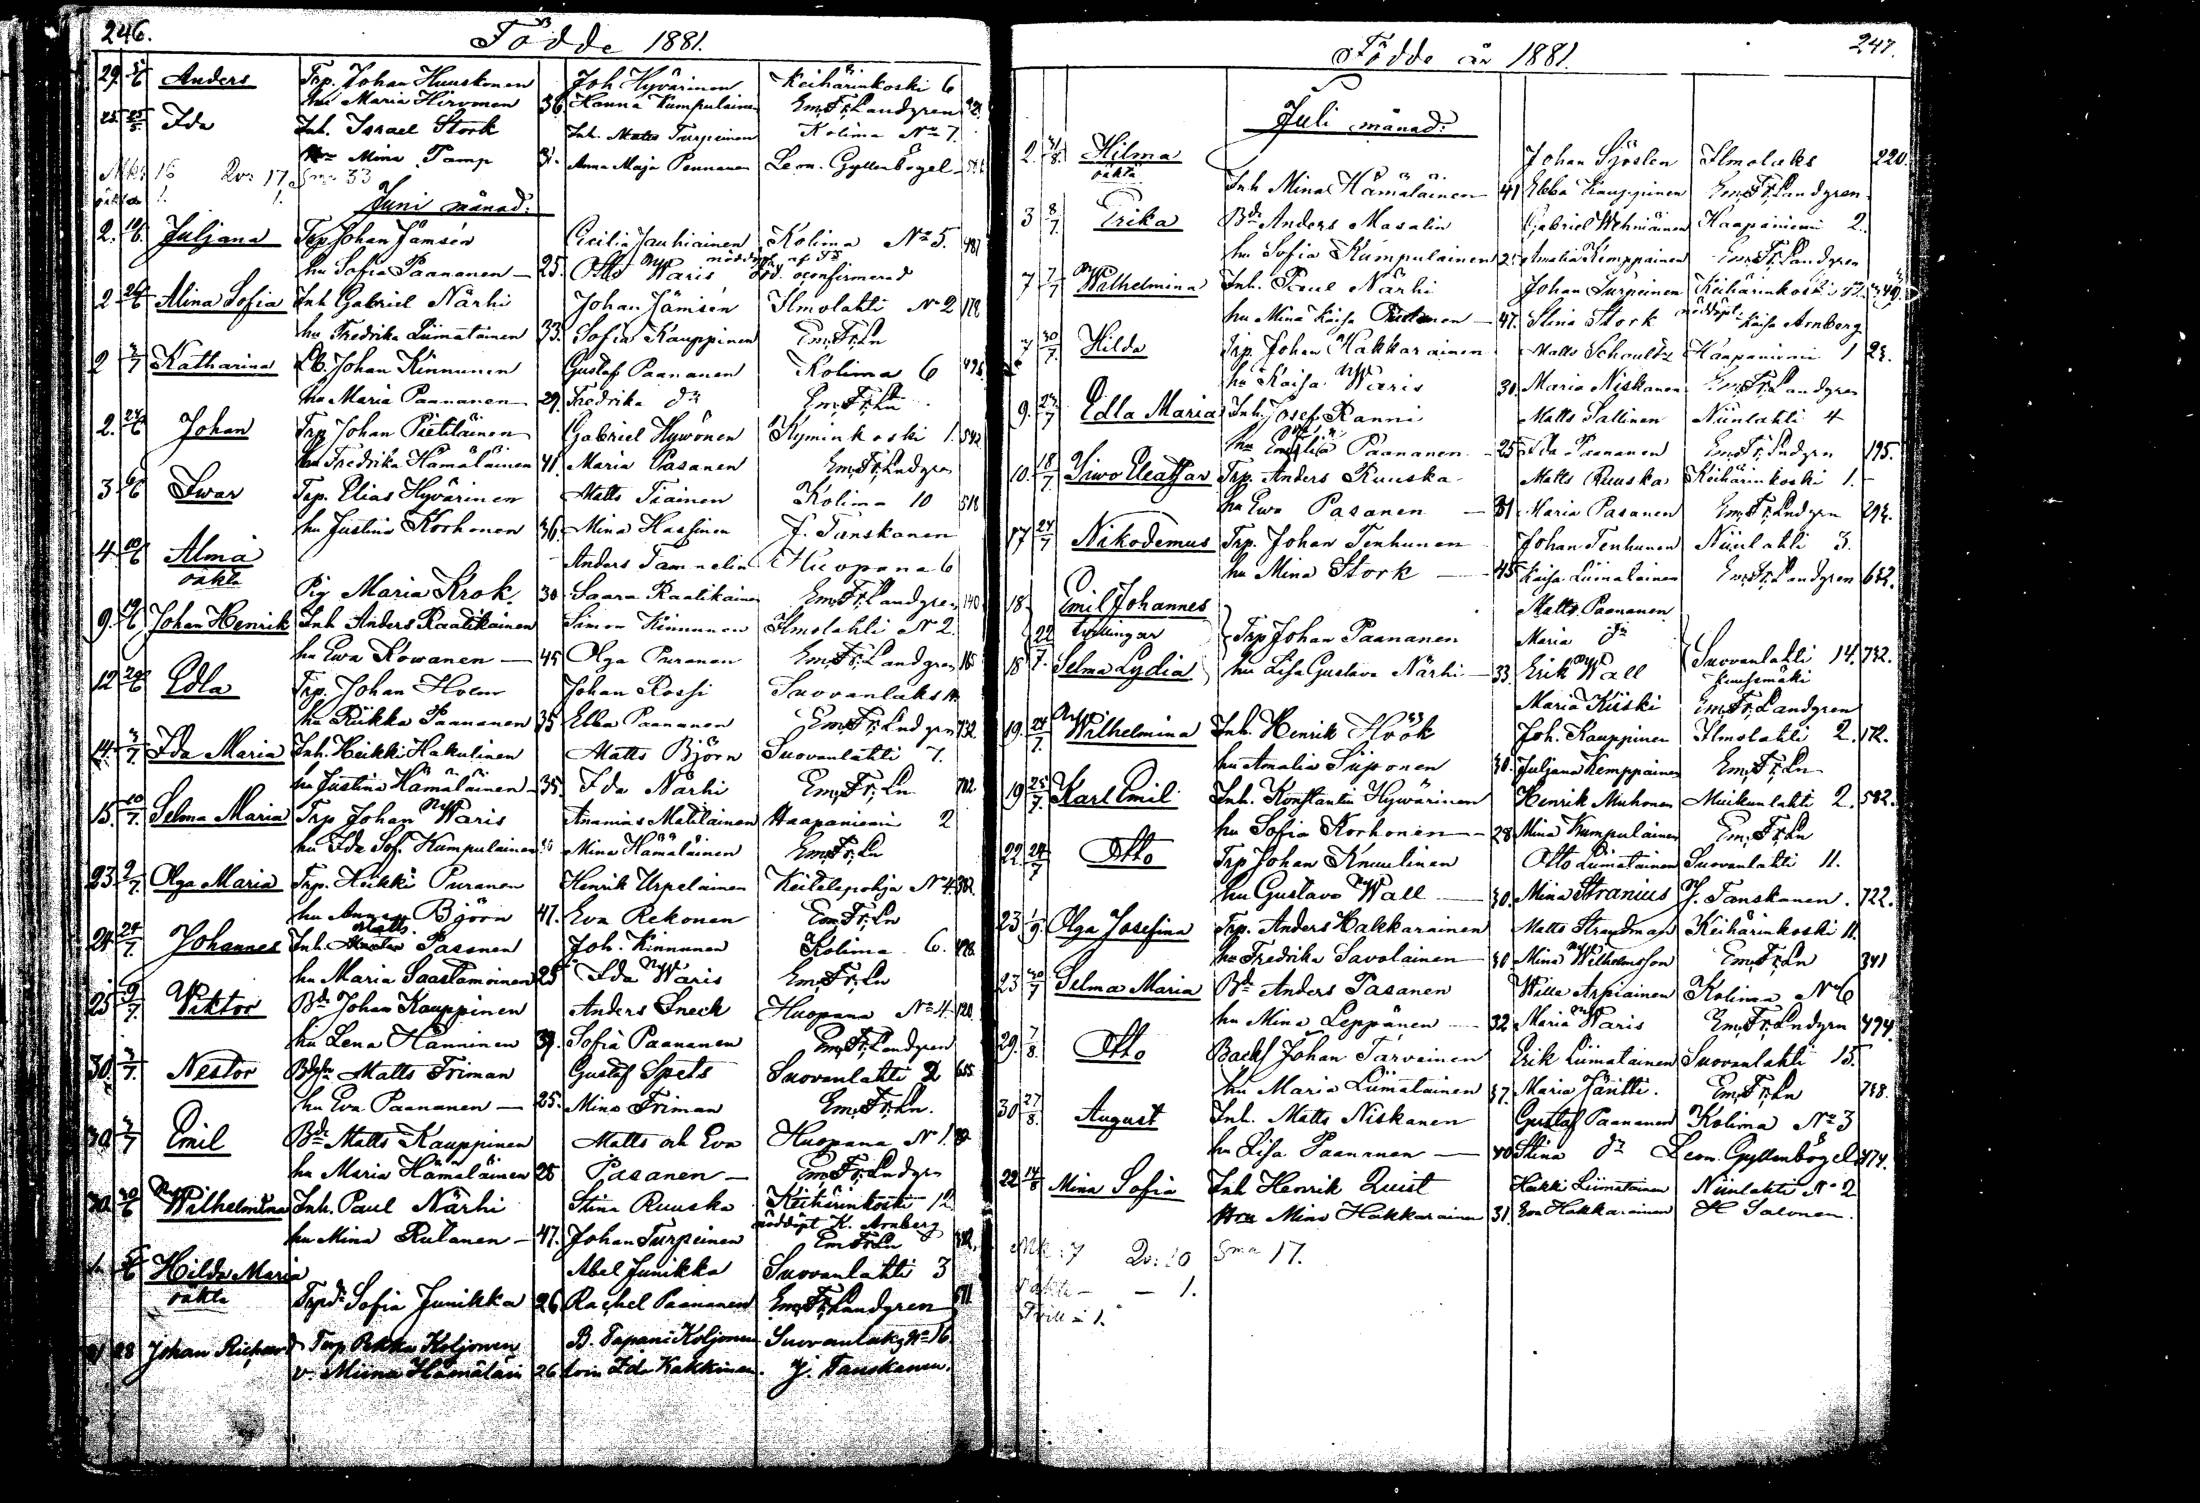 246.
Födde 1881.
29. 5/6 Anders Trp. Johan Huuskonen Joh Hyvärinen Keihärinkoski 6
hu Maria Hirvonen 36. Hanna Kumpulainen Em. Fr. Landgren
25. 25/5 Ida Inh. Israel Stork Inh. Matts Turpeinen Kolima No 7.
Mina Tamp 31. Anna Maja Pennanen Leon. Gyllenbögel
Mk: 16 Qv: 17 Sma 33
oäkta 1. 1.
Juni månad:
2. 10/6. Juljana Trp Johan Jämsén Cicilia Jauhiainen Kolima No 5. 487
hu Sofia Paananen 25. Otto Waris oconfirmerad
2 26/6 Alina Sofia Inh Gabriel Närhi Johan Jämsén Ilmolahti No 2 178
hu Fredrika Liimatainen 33. Sofia Kauppinen Em. Fr. Ln
2 3/7 Katharina Johan Kinnunen Gustaf Paananen Kolima 6
hu Maria Paananen 29. Fredrika do Em. Fr. Ln
2. 24/6 Johan Trp Johan Pietiläinen Gabriel Hywönen Kyminkoski 1. 542
hu Fredrika Hämäläinen 41. Maria Pasanen Em. Fr. Lndgren
3 6/6 Iwar Trp. Elias Hyvärinen Matts Tiainen Kolima 10 518
hu Justina Korhonen 36. Mina Hassinen J. Tanskanen
4. 10/6 Alma Anders Tamnelin Huopana 6
oäkta
Pig Maria Krok. 30 Saara Raatikainen Em. Fr. Landgren 140
9. 19/6 Johan Henrik Inh Anders Raatikainen Simon Kinnunen Ilmolahti No 2.
hu Ewa Kowanen 45 Olga Puranen Em. Fr. Landgren 165
12 29/6 Edla Trp. Johan Johan Rossi Suovanlaks 14.
hu Riikka Paananen 35 Ebba Paananen Em. Fr. Lndgren 732
14. 3/7. Ida Maria Inh. Heikki Hakulinen Matts Björn Suovanlahti 7.
hu Justina Hämäläinen 35. Ida Närhi Em. Fr. Ln 702
15. 10/7. Selma Maria Trp Johan Waris Ananias Matilainen Haapaniemi 2
hu Ida Sof. Kumpulainen 30 Mina Hämäläinen Em. Fr. Ln
23. 2/7. Olga Maria Trp. Heikki Puranen Henrik Urpelainen Keitelepohja No 4. 382
hu Anna Björn 47. Eva Rekonen Em. Fr. Ln
24 24/7. Johannes Inh. Matts Pasanen Joh. Kinnunen Kolima 6. 498
hu Maria Saastamoinen 25 Ida Waris Em. Fr. Ln
25 9/7. Viktor Bde Johan Kauppinen Anders Sneck Huopana No 4 120.
hu Lena Hänninen 39. Sofia Paananen Em. Fr. Landgren
30. 3/7. Nestor Matts Friman Gustaf Spets Suovanlahti 2 655
hu Eva Paananen 25. Mina Friman Em. Fr. Ln.
30. 3/7 Emil Bde Matts Kauppinen Matts och Eva Huopana No 1.
hu Maria Hämäläinen 25 Pasanen Em. Fr. Lndgren
30. 30/6 Wilhelmina Inh. Paul Närhi Stina Ruuska Keihärinkoski 12
nöddöpt K. Arnberg
hu Mina Rutanen 47. Johan Turpeinen Em Fr Ln 342.
Hilda Maria Abel Junikka Suovanlahti 3
oäkta Trpdr Sofia Junikka 26 Rachel Paananen Em. Fr. Landgren 671
21 28 Johan Richard Trp Pekka Koljonen B. Tapani Koljonen Suovanlaks No 16.
v. Miina Hämäläin 26 Ida Kakkinen. J. Tanskanen.
247.
Födde år 1881.
Juli månad:
2. 31/8. Hilma Johan Sjöslen Ilmolaks 220.
oäkta
Inh Mina Hämäläinen 41 Ebba Kauppinen Em. Fr. Landgren
3 8/7 Erika Bde Anders Masalin Gabriel Wehniäinen Haapaniemi 2.
hu Sofia Kumpulainen Amalia Kemppainen Em. Fr. Landgren
7 7/7 Walhelmina Inh. Paul Närhi Johan Turpeinen Keihärinkoski 12. 349.
nöddöpt. Kaisa Arnberg
hu Mina Kaisa Rutanen 47. Stina Stork
7 30/7. Hilda Trp. Johan Hakkarainen Matts Schoultz Haapaniemi 1 23.
hu Kaisa Waris 30. Maria Niskanen Em. Fr. Landgren
9. 23/7 Edla Maria Inh. Josef Ranni Matts Sallinen Niinlahti 4
hu Emilia Paananen 25 Ida Paananen Em. Fr. Lndgrn 195.
10. 18/7 Siwo Eleatsar Trp. Anders Ruuska Matts Ruuska Keihärinkoski 1.
hu Ewa Pasanen 31 Maria Pasanen Em. Fr. Lndgrn 293.
17 24/7 Nikodemus Trp. Johan Tenhunen Johan Tenhunen Niinlahti 3.
hu Mina Stork 45 Kaisa Liimatainen Em. Fr. Landgren 632.
18 Emil Johannes Matts Paananen
22 tvillingar Trp Johan Paananen Maria do
18 7. Selma Lydia hu Lisa Gustava Närhi 33. Erik Wall Suovanlahti 14. 732.
Kuusmäki
Maria Kiiski Em. Fr. Landgren
19. 24/7. Wilhelmina Inh. Henrik Höök Joh. Kauppinen Ilmolahti 2. 172.
hu Amalia Siiponen 30. Juljana Kemppainen Em. Fr. Ln
19 25/7. Karl Emil Inh. Konstantin Hywärinen Henrik Muhonen Muikunlahti 2. 582.
hu Sofia Korhonen 28 Mina Kumpulainen Em. Fr. Ln
22. 24/7 Otto Trp Johan Knuutinen Otto Liimatainen Suovanlahti 11.
hu Gustava Wall 30. Mina Stranius J. Tanskanen. 722.
23 1/9. Olga Josefina Trp. Anders Hakkarainen Matts Strandman Keihärinkoski 11.
hu Fredrika Savolainen 30 Mina Wilhelmsson Em. Fr. Ln 341
23 30/7 Selma Maria Bde Anders Pasanen Wille Arpiainen Kolima No 6
hu Mina Leppänen 32 Maria Waris Em. Fr. Lndgrn 494.
29. 7/8. Otto Backs Johan Tarvainen Erik Liimatainen Suovanlahti 15.
hu Maria Liimatainen 37. Maria Jäntti. Em. Fr. Ln 738.
30 27/8. August Inh. Matts Niskanen Gustaf Paananen Kolima No 3
hu Lisa Paananen 40 Stina do Leon. Gyllenbögel 474.
22 14/8 Mina Sofia Inh Henrik Quist Heikki Liimatainen Niinlahti No 2
Mina Hakkarainen 31. Eva Hakkarainen H Salonen.
Mk: 7 Qv: 10 Sma 17.
oäkta - - 1.
Trill - 1.